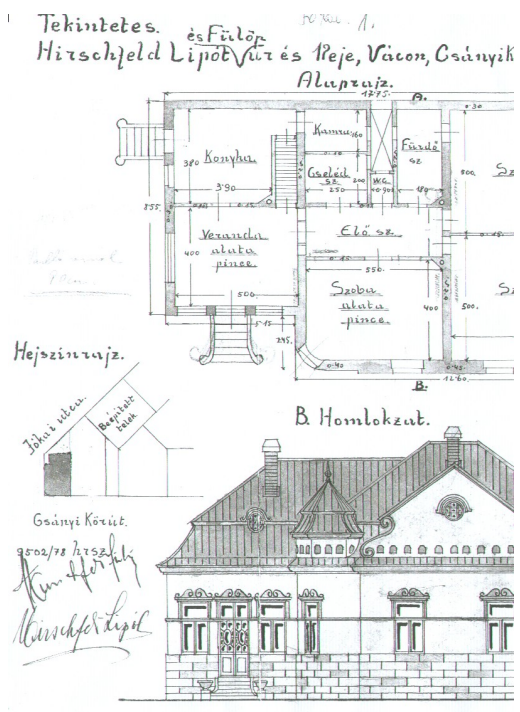 1.
Tekintetes.
és Fülöp
Hirschfeld Lipót Úr és Neje, Vácon, Csányi K
Alaprajz.
1775.
A.
0·30
Kamra
160
Fürdő
sz.
380
Konyha
Cseléd
sz.
200
250
W.C.
0·90
180
500.
Sz
3·90
855.
Veranda
alata
pince.
400
500.
Elő sz.
0·15.
550.
Szoba
alata
pince.
400
500.
Sz
5·15
245.
0·40
0·45.
B.
1260.
Hejszinrajz.
B. Homlokzat.
Jókai utca.
Beépitett
telek
Csányi Körút.
9502/78 hrsz
Hirschfeld Lipót